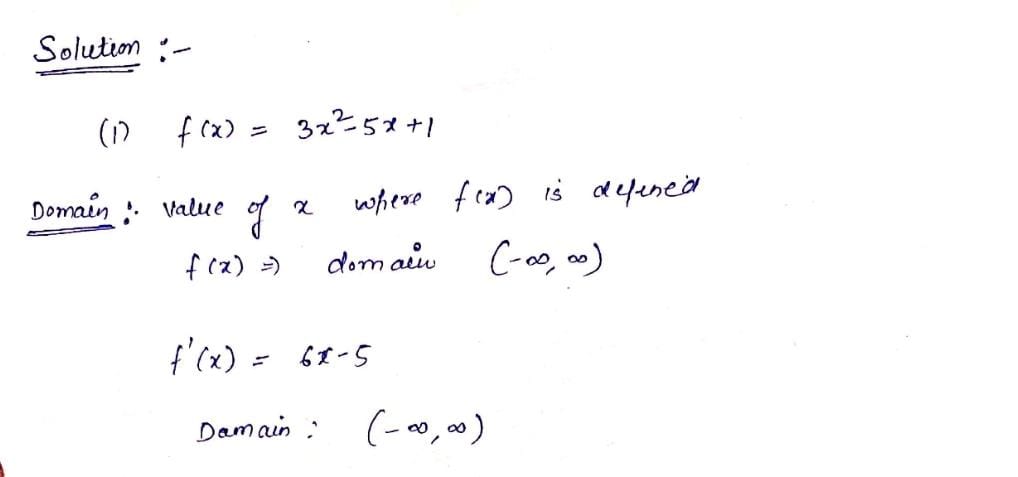 Solution :-
(1) f(x) = 3x²-5x+1
Domain :. value of x where f(x) is defined
f(x) ⇒ domain (-∞, ∞)
f'(x) = 6x-5
Damain : (-∞, ∞)